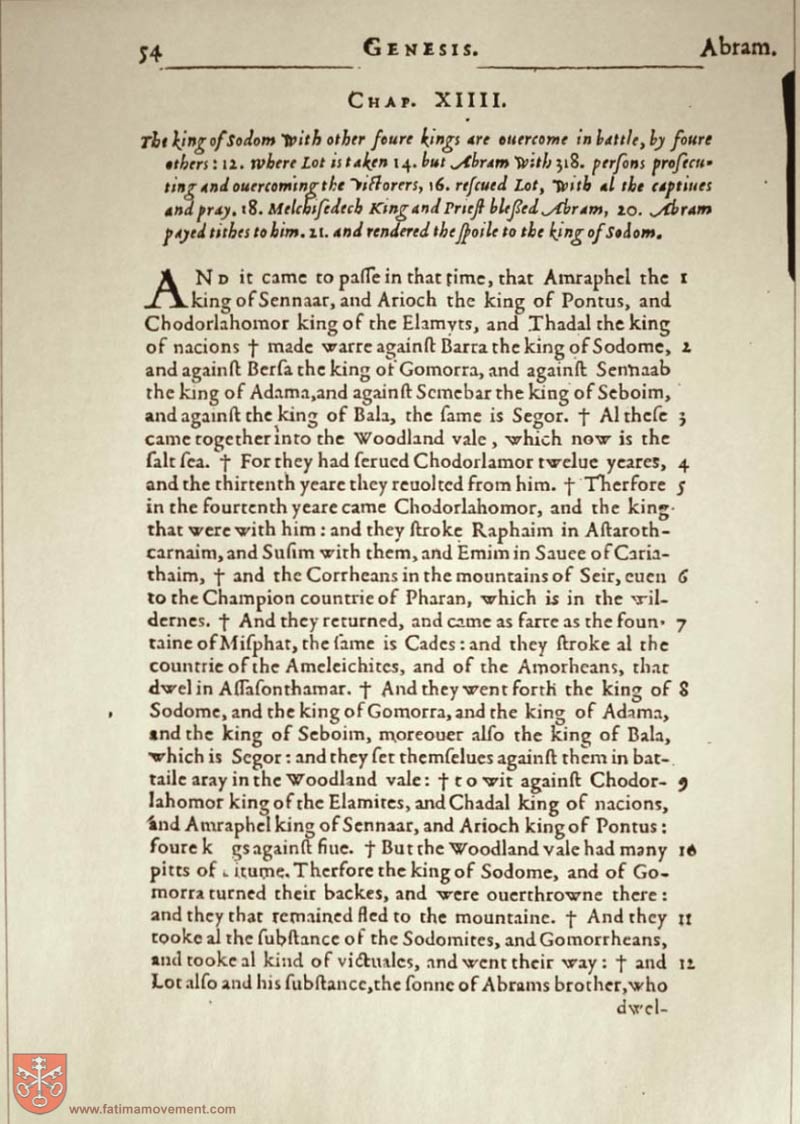 54 GENESIS. Abram.
CHAP. XIIII.
The king of Sodom with other foure kings are ouercome in battle, by foure
others: 12. where Lot is taken 14. but Abram with 318. perſons proſecu-
ting and ouercoming the victorers, 16. reſcued Lot, with al the captiues
and pray. 18. Melchiſedech King and Prieſt bleßed Abram, 20. Abram
payed tithes to him. 21. and rendered the ſpoile to the king of Sodom.
AND it came to paſſe in that time, that Amraphel the 1
king of Sennaar, and Arioch the king of Pontus, and
Chodorlahomor king of the Elamyts, and Thadal the king
of nacions † made warre againſt Barra the king of Sodome, 2
and againſt Berſa the king of Gomorra, and againſt Sennaab
the king of Adama, and againſt Semebar the king of Seboim,
and againſt the king of Bala, the ſame is Segor. † Al theſe 3
came together into the Woodland vale, which now is the
ſalt ſea. † For they had ſerued Chodorlamor twelue yeares, 4
and the thirtenth yeare they reuolted from him. † Therfore 5
in the fourtenth yeare came Chodorlahomor, and the king
that were with him: and they ſtroke Raphaim in Aſtaroth-
carnaim, and Suſim with them, and Emim in Sauee of Caria-
thaim, † and the Corrheans in the mountains of Seir, euen 6
to the Champion countrie of Pharan, which is in the wil-
dernes. † And they returned, and came as farre as the foun- 7
taine of Miſphat, the ſame is Cades: and they ſtroke al the
countrie of the Ameleichites, and of the Amorheans, that
dwel in Aſſaſonthamar. † And they went forth the king of 8
Sodome, and the king of Gomorra, and the king of Adama,
and the king of Seboim, moreouer alſo the king of Bala,
which is Segor: and they ſet themſelues againſt them in bat-
taile aray in the Woodland vale: † to wit againſt Chodor- 9
lahomor king of the Elamites, and Chadal king of nacions,
and Amraphel king of Sennaar, and Arioch king of Pontus:
foure k gs againſt fiue. † But the Woodland vale had many 10
pitts of itume. Therfore the king of Sodome, and of Go-
morra turned their backes, and were ouerthrowne there:
and they that remained fled to the mountaine. † And they 11
tooke al the ſubſtance of the Sodomites, and Gomorrheans,
and tooke al kind of victuales, and went their way: † and 12
Lot alſo and his ſubſtance, the ſonne of Abrams brother, who
dwel-
www.fatimamovement.com